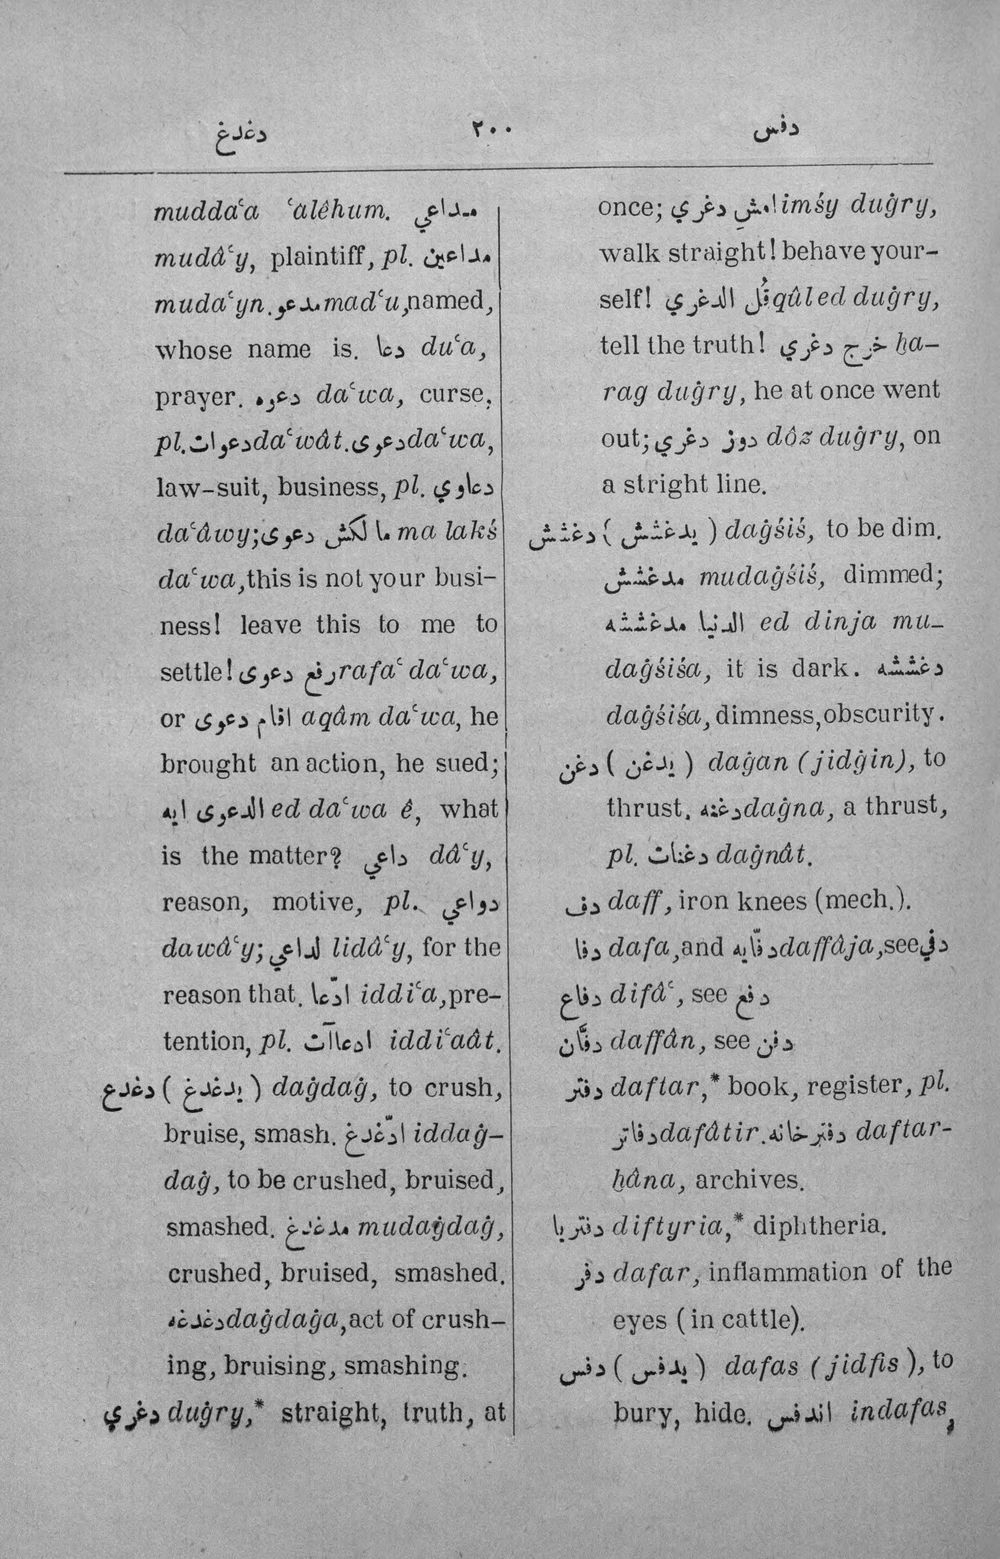 دغدغ ٢٠٠ دفس
mudda‘a ‘alêhum. مداعي
mudâ‘y, plaintiff, pl. مداعين
muda‘yn. مدعو mad‘u, named,
whose name is. دعا du‘a,
prayer. دعوه da‘wa, curse,
pl. دعوات da‘wât. دعوى da‘wa,
law-suit, business, pl. دعاوي
da‘âwy; ما لكش دعوى ma lakś
da‘wa, this is not your busi-
ness! leave this to me to
settle! رفع دعوى rafa‘ da‘wa,
or اقام دعوى aqâm da‘wa, he
brought an action, he sued;
الدعوى ايه ed da‘wa ê, what
is the matter? داعي dâ‘y,
reason, motive, pl. دواعي
dawâ‘y; لداعي lidâ‘y, for the
reason that. ادّعا iddi‘a, pre-
tention, pl. ادعاآت iddi‘aât.
دغدع (يدغدغ) daġdaġ, to crush,
bruise, smash. ادّغدغ iddaġ-
daġ, to be crushed, bruised,
smashed. مدغدغ mudaġdaġ,
crushed, bruised, smashed.
دغدغه daġdaġa, act of crush-
ing, bruising, smashing.
دغري duġry,* straight, truth, at
once; امشِ دغري imśy duġry,
walk straight! behave your-
self! قُل الدغري qûl ed duġry,
tell the truth! خرج دغري ḫa-
rag duġry, he at once went
out; دوز دغري dôz duġry, on
a stright line.
دغثش (يدغثش) daġśiś, to be dim.
مدغشش mudaġśiś, dimmed;
الدنيا مدغششه ed dinja mu-
daġśiśa, it is dark. دغششه
daġśiśa, dimness, obscurity.
دغن (يدغن) daġan (jidġin), to
thrust. دغنه daġna, a thrust,
pl. دغنات daġnât.
دف daff, iron knees (mech.).
دفا dafa, and دفّايه daffâja, see دفي
دفاع difâ‘, see دفع
دفّان daffân, see دفن
دفتر daftar,* book, register, pl.
دفاتر dafâtir. دفترخانه daftar-
ḫâna, archives.
دفتريا diftyria,* diphtheria.
دفر dafar, inflammation of the
eyes (in cattle).
دفس (يدفس) dafas (jidfis), to
bury, hide. اندفس indafas,